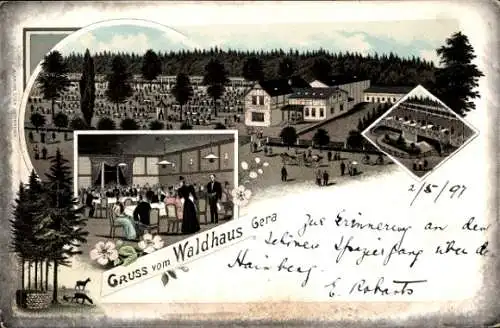 GRUSS vom Waldhaus Gera
2/5/97
Zur Erinnerung an den
schönen Spaziergang über de
Hainberg.
E. Robarts